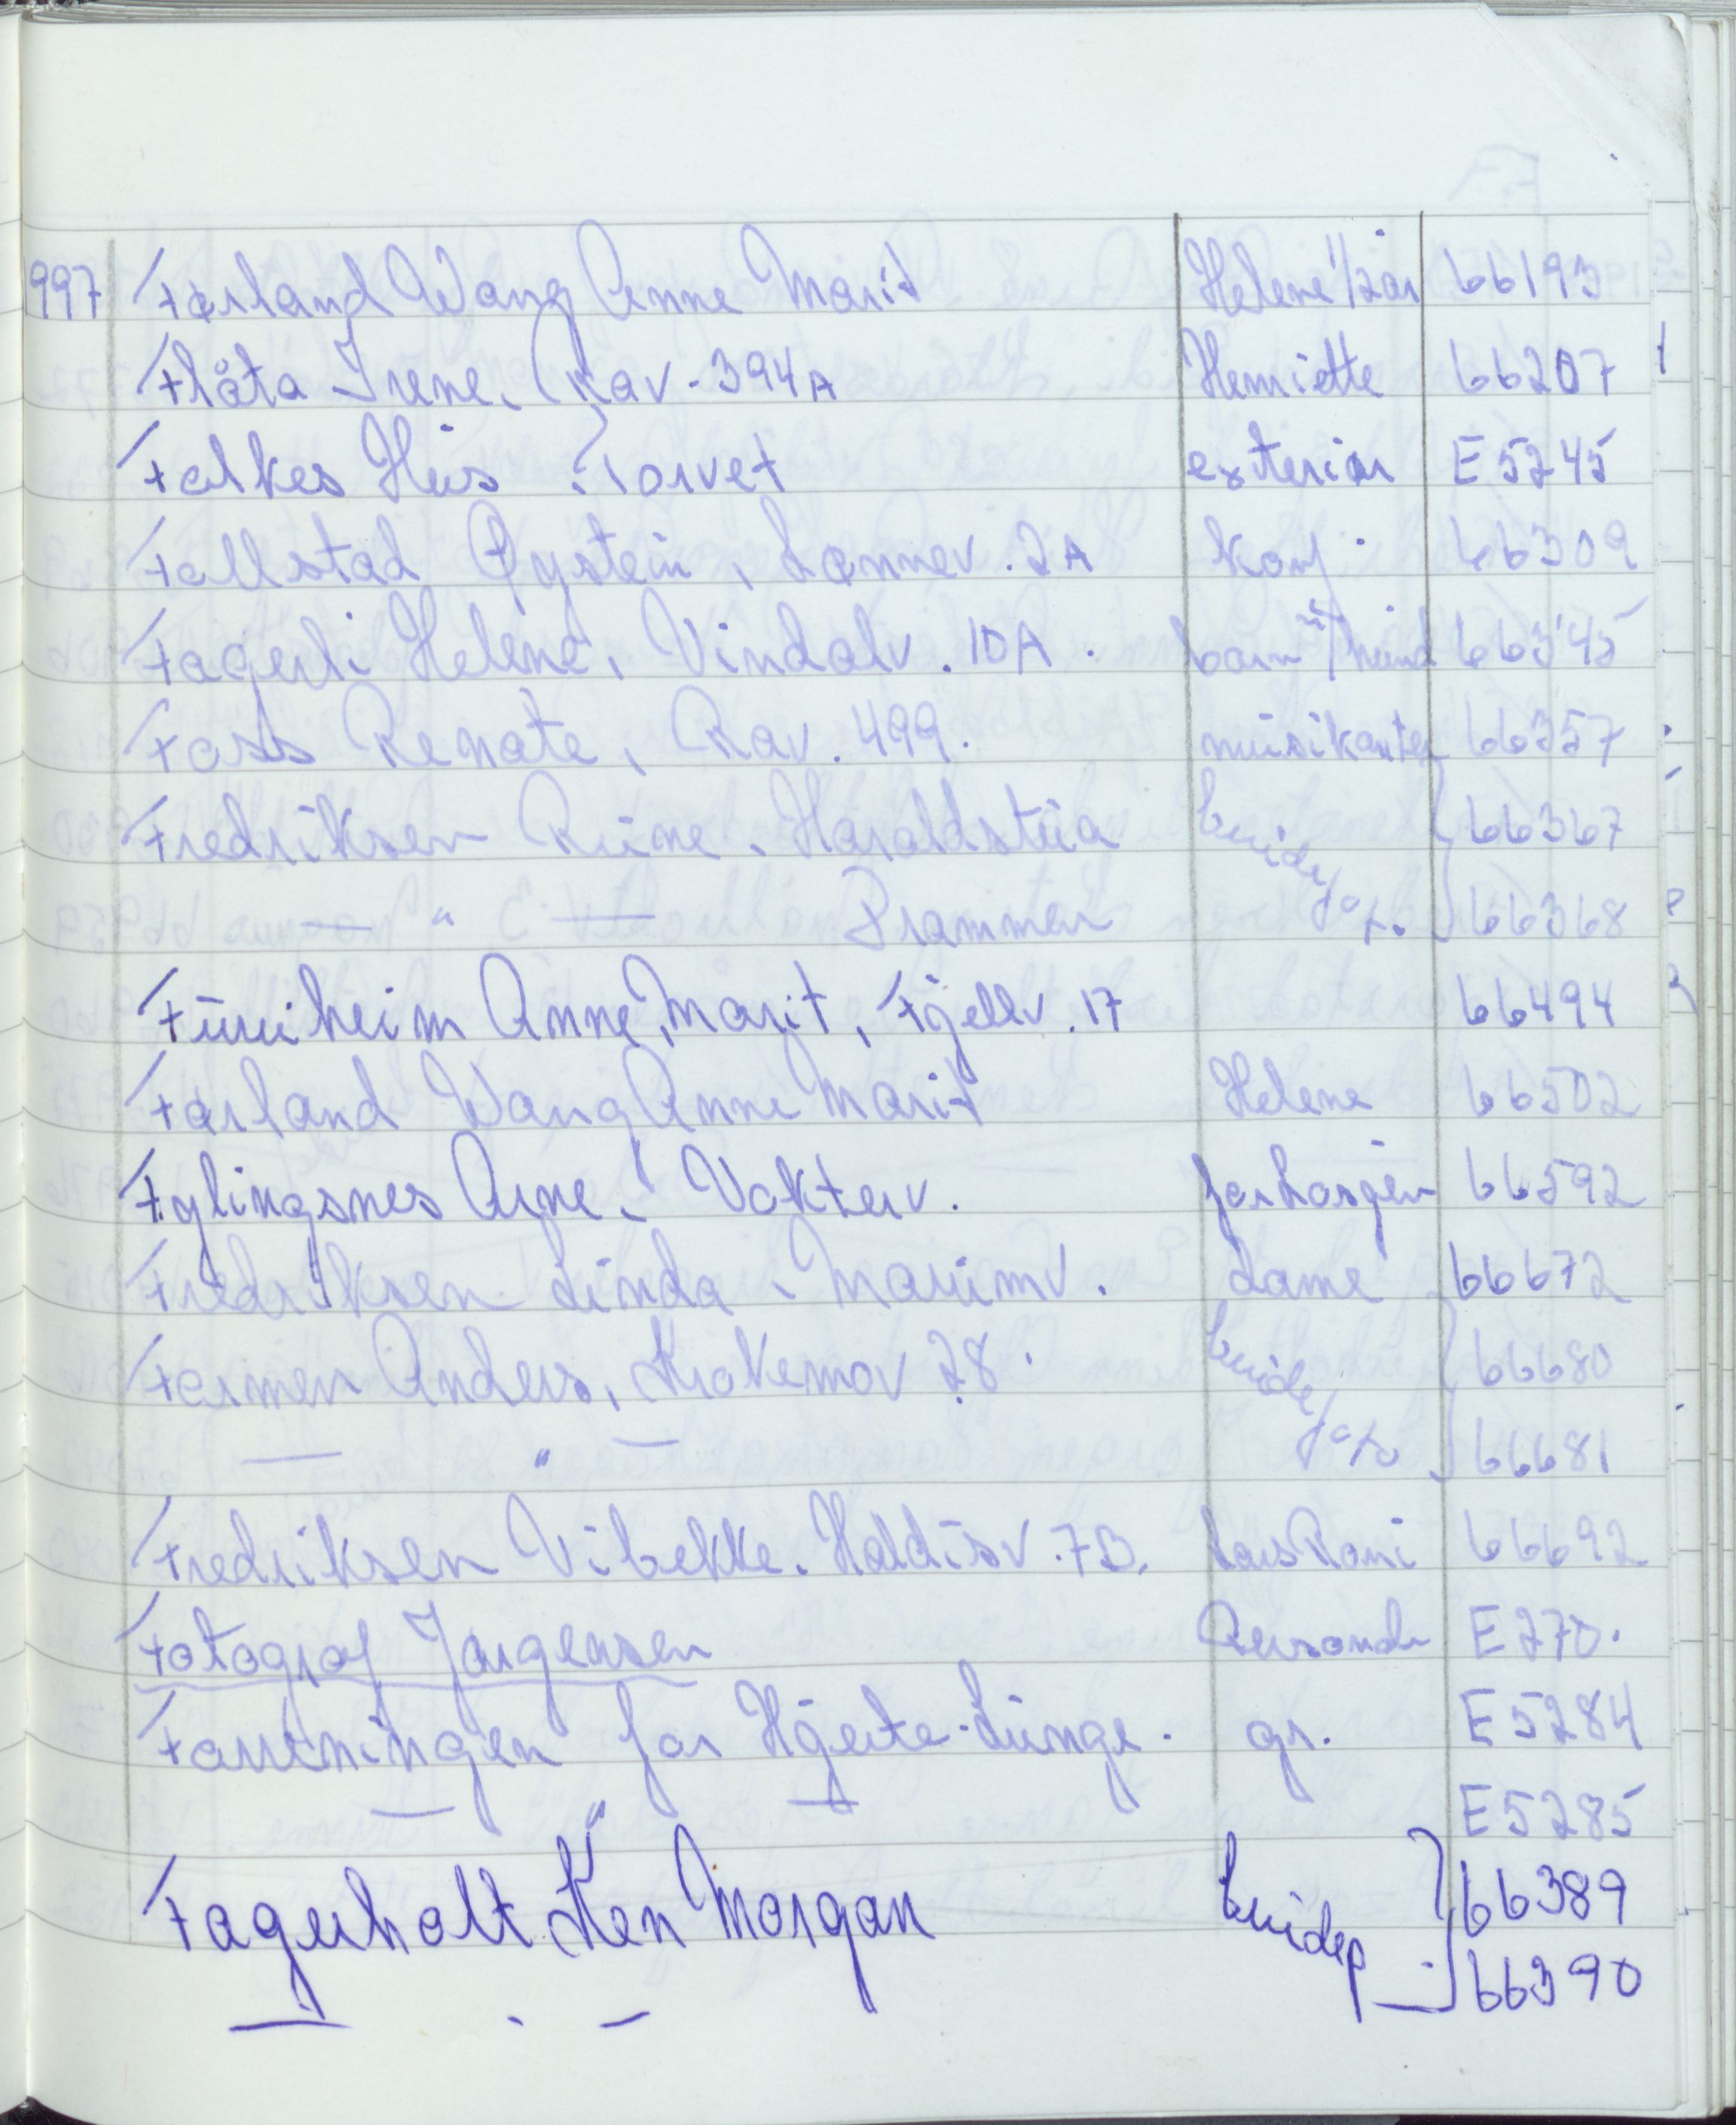 1997 Førland Wang Anne Marit Helene 1/2 år 66193
Flåta Irene, Rav. 394A Henriette 66207
Falkes Hus Torvet exteriør E 5245
Fallstad Øystein, Lønnev. 2A konf. 66309
Fagerli Helene, Vindalv. 10A. barn m/hund 66345
Foss Renate, Rav. 499. musikanter 66357
Fredriksen Rune. Haraldstua brude 66367
— " — Drammen foto. 66368
Furuheim Anne Marit, Fjellv. 17 66494
Førland Wang Anne Marit Helene 66502
Fylingsnes Arne, Vokterv. farhasjen 66592
Fredriksen Linda, Mauimv. Lame 66672
Farmen Anders, Krokemov 28. brude 66680
— " — foto 66681
Fredriksen Vibekke. Haldisv. 7B. Lars Roni 66692
Fotograf Jørgensen Reisande E 270.
Foreningen for Hjerte-Lunge. gr. E 5284
— " — E 5285
Fagerholt Ken Morgan brudep 66389
— " — 66390